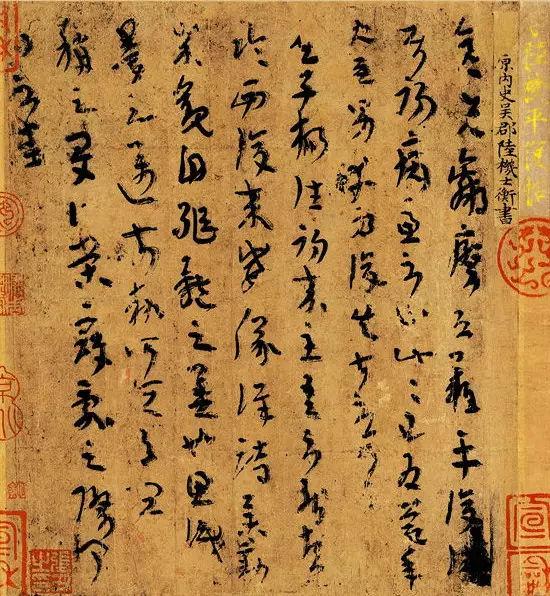 晉陸機平復帖
原內史吳郡陸機士衡書
彥先羸瘵恐難平復往屬
初病慮不止此此已為慶承
使唯男幸為復失前憂耳
子楊往初來主吾不能盡
臨西復來威儀詳跱舉動
成觀自軀體之美也思識
量之邁前執所恒有宜
稱之夏伯榮寇亂之際聞
問不悉